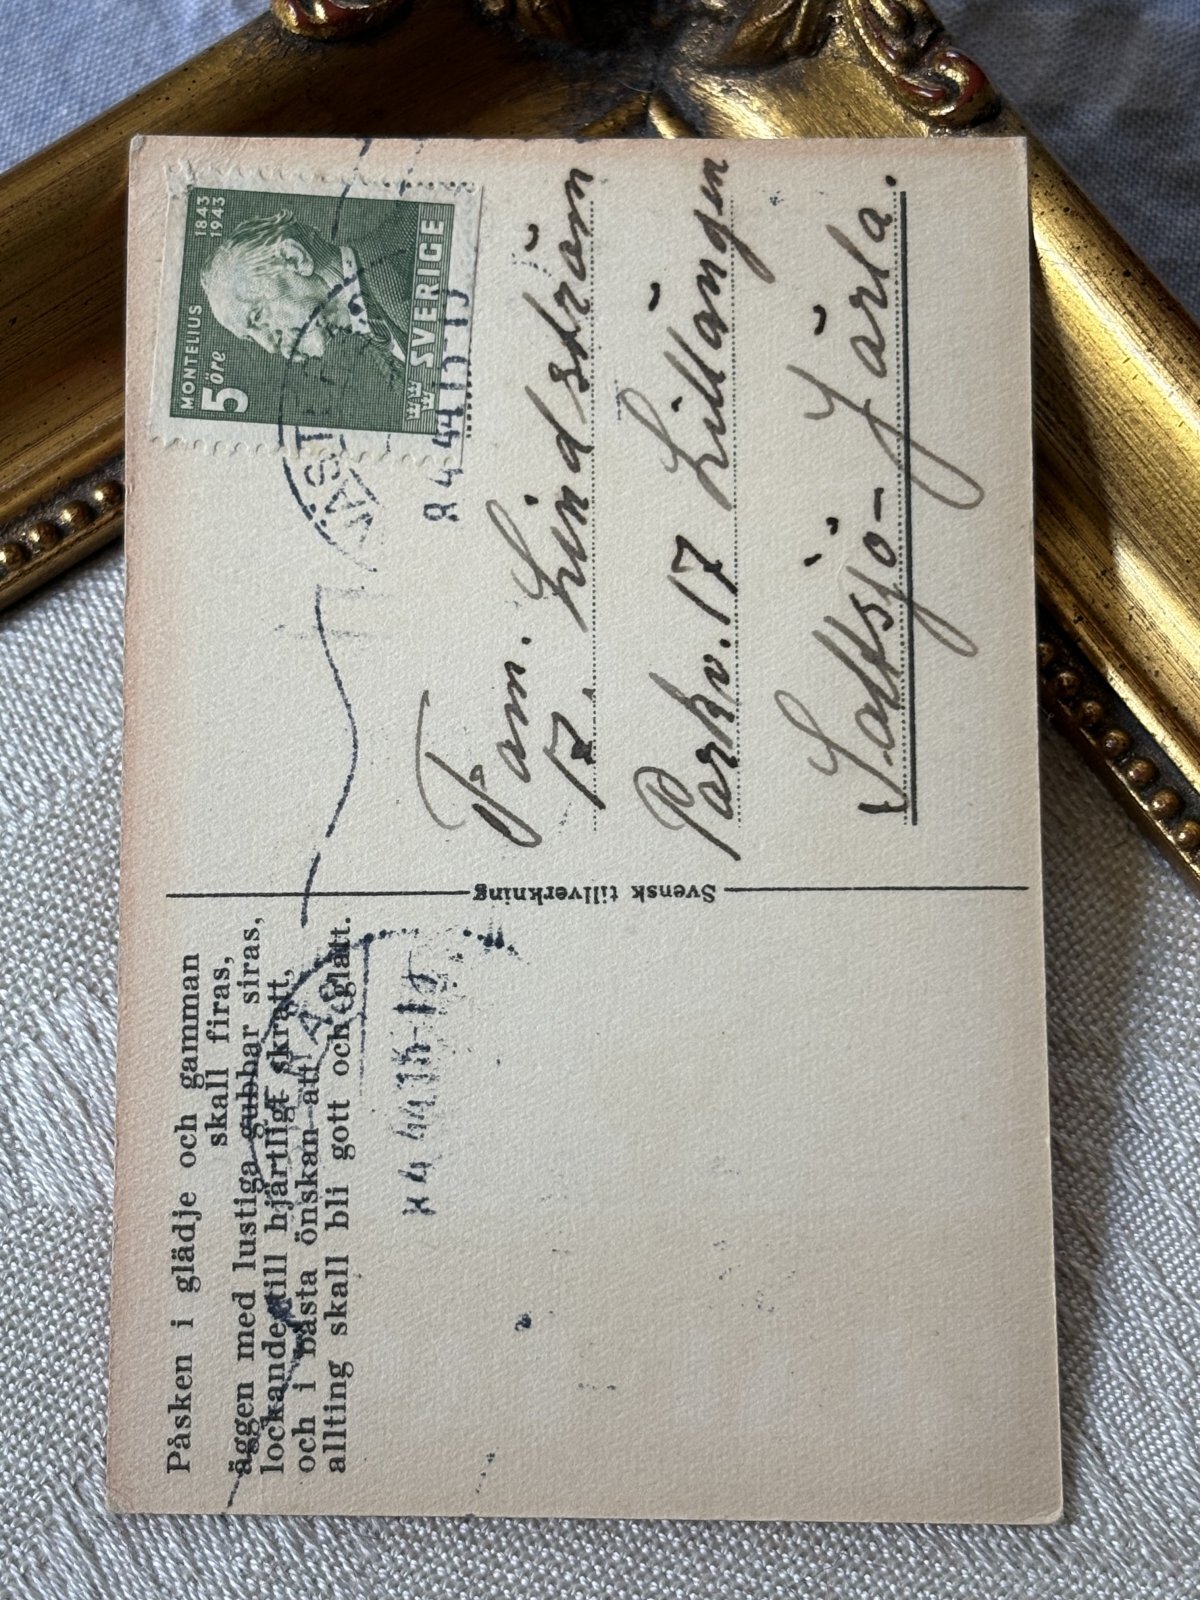 Påsken i glädje och gamman
skall firas,
äggen med lustiga gubbar siras,
lockande till hjärtligt skratt,
och i bästa önskan att
allting skall bli gott och glatt.
8 4 44 15-19
Svensk tillverkning
MONTELIUS
1843
1943
5 öre
SVERIGE
8 4 44 15
Fam. Lindström
17.
Parkv. 17 Lillängen
Saltsjö-Järla.